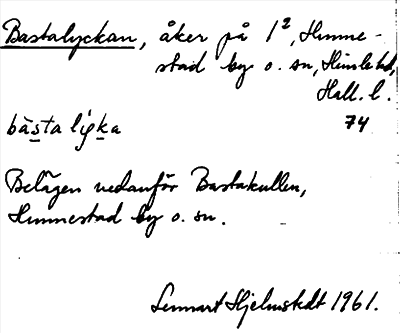 Bastalyckan, åker på 1², Himme-
stad by o. sn, Himle hd,
Hall. l.
74
bàsta lyka
Belägen nedanför Bastakullen,
Himmestad by o. sn.
Lennart Hjelmstedt 1961.